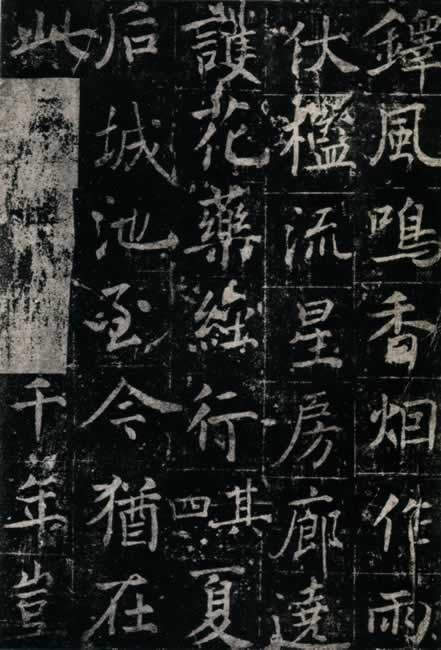 鐸風鳴香烟作雨
伏檻流星房廊遶
護花藥經行其四夏
后城池至今猶在
此千年豈